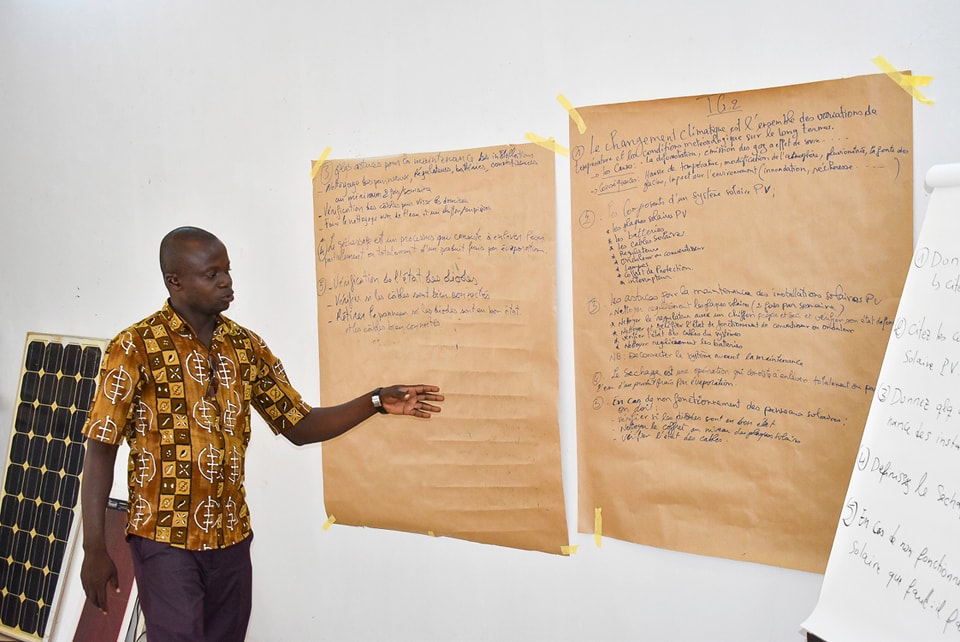 ③ qlqs astuces pour la maintenance des installations
- Nettoyage des panneaux, Régulateurs, batteries, convertisseurs
au minimum 2 fois/semaine
- Vérification des câbles puis visse des dominos
- Faire le nettoyage avec de l'eau et un chiffon
④ Le séchage est un processus qui consiste à enlever l'eau
partiellement ou totalement d'un produit frais par évaporation.
⑤ - Vérification de l'état des diodes,
- Vérifier si les câbles sont bien connectés
- Retirer le panneau si les diodes sont en bon état
et les câbles bien connectés
TG.2
① Le changement climatique est l'ensemble des variations de
température et des conditions météorologique sur le long terme.
→ les Causes : la déforestation, émission des gaz à effet de serre.
→ Conséquences : Hausse de température, modification de l'atmosphère, pluviométrie, la fonte des
glaciers, impact sur l'environnement (inondation, sécheresse ...)
② Les Composants d'un système solaire PV,
* les plaques solaires PV
* les batteries
* les cables solaires
* Régulateurs
* onduleur ou convertisseur
* Lampes
* coffret de Protection.
* interrupteur
③ Les astuces sur la maintenance des installations solaires PV
- Nettoyer régulièrement les plaques solaires (2 fois par semaine)
* Nettoyer le régulateur avec un chiffon propre et sec et vérifier son état
* Nettoyer et vérifier l'état de fonctionnement de convertisseur ou onduleur
* vérifier l'état des cables du système
* Nettoyer régulièrement les batteries
NB: Déconnecter le système avant la maintenance
④ Le Sechage est une opération qui consiste à enlever totalement ou par
l'eau d'un produit frais par évaporation.
⑤ En Cas de non fonctionnement des panneaux solaires,
on doit:
- Vérifier si les diodes sont en bon état
- Nettoyer le coffret au niveau des plaques solaire
- Vérifier l'état des cables
① Don
② Citez les c
Solaire PV
③ Donnez qlq
nance des inst
④ Définissez le Sécha
⑤ En cas de non fonctionne
Solaire que faut-il